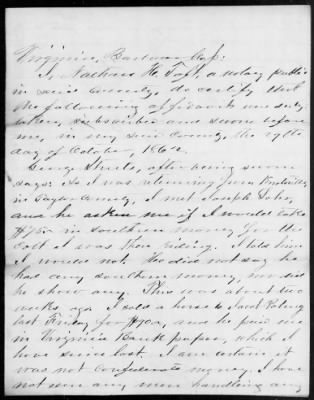 Virginia, Barbour Co, ss:
I, Nathan H. Taft, a notary public
in said County, do certify that
the following affidavits were duly
taken, subscribed and sworn before
me, in my said County, the 29th
day of October, 1862.
George Streets, after being sworn
says: As I was returning from
in Taylor County, I met Joseph
and he asked me if I would take
$150 in southern money for the
colt I was then riding. I told him
I would not. He did not say he
had any southern money, nor did
he show any. This was about two
weeks ago. I sold a horse to
last Friday for $90, and he paid me
in Virginia Bank paper, which I
have since lost. I am certain it
was not Confederate money. I have
not seen any men handling any